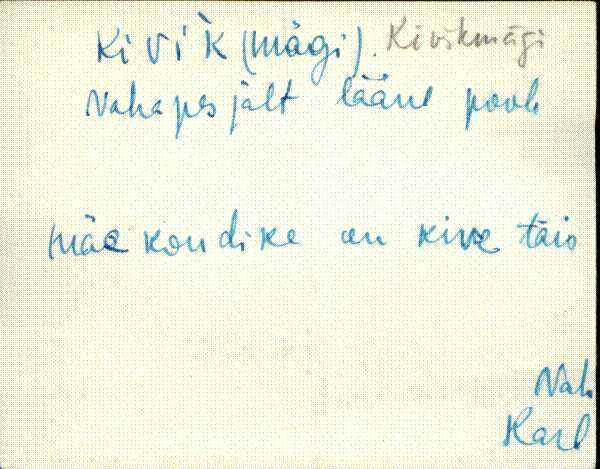 Kivi`k (mägi). Kivikmägi
Nahapesjält lääne poole
mäe kondike on kive täis
Nah
Karl